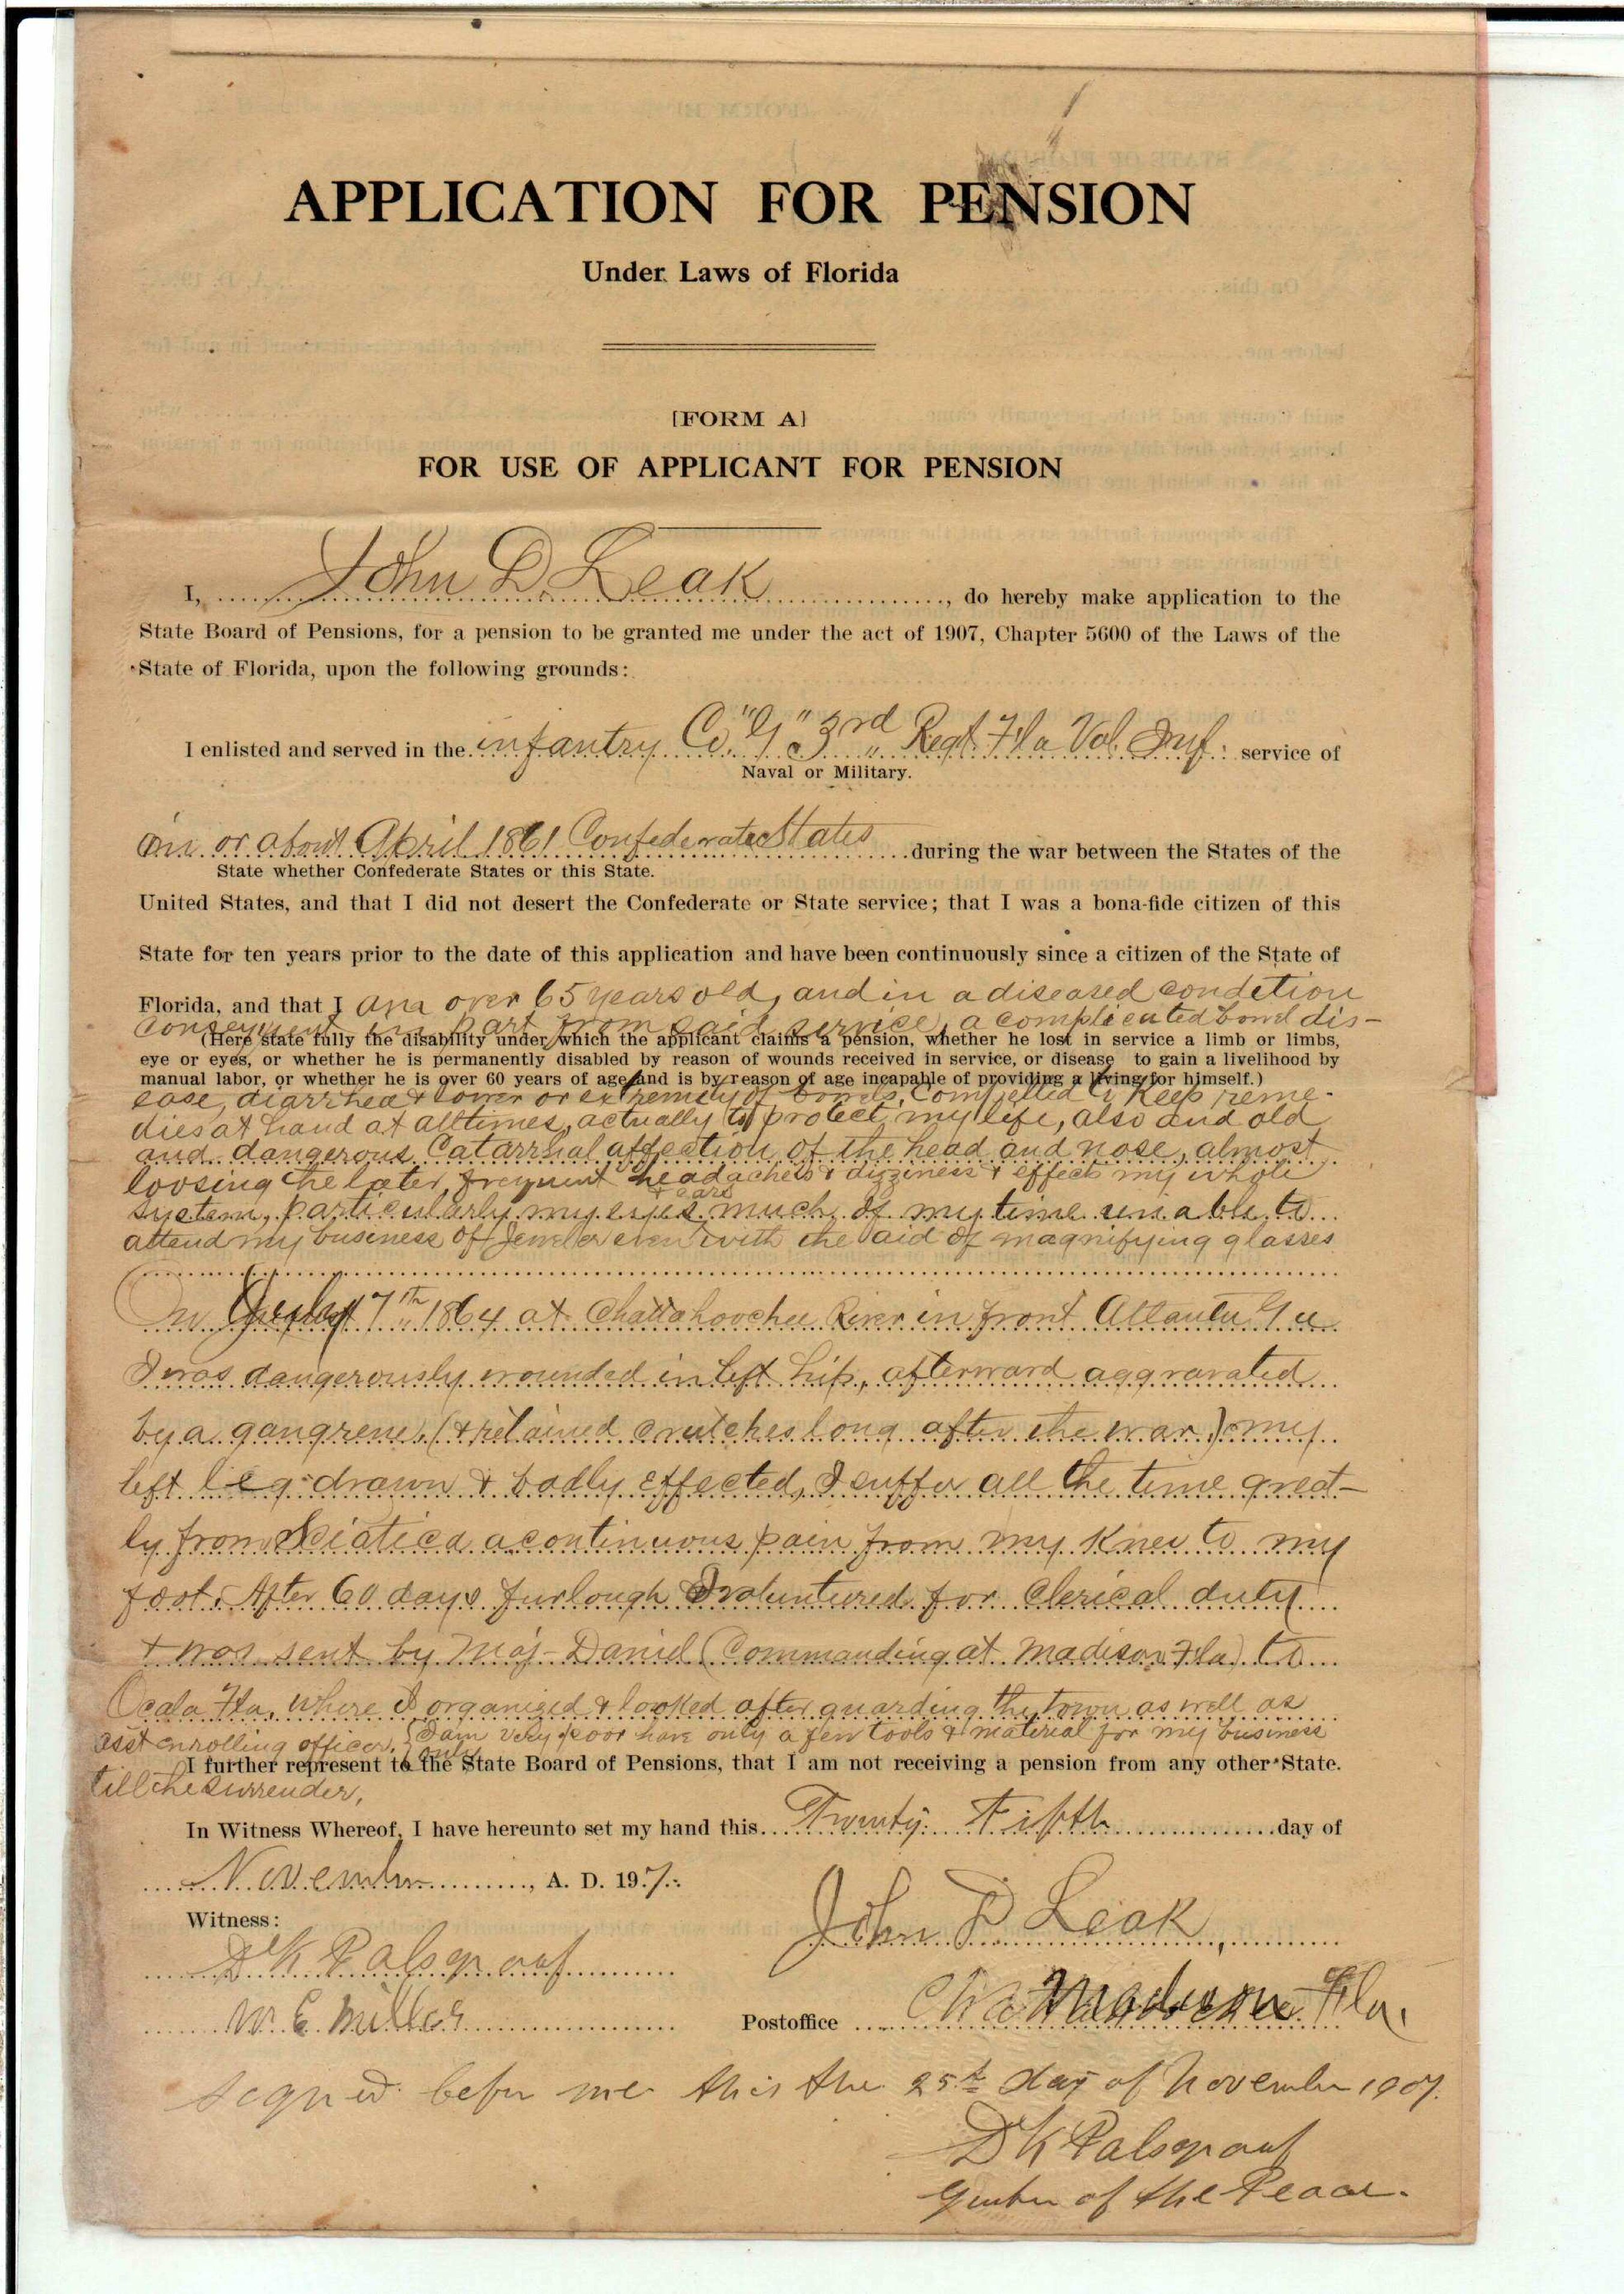 APPLICATION FOR PENSION
Under Laws of Florida
[FORM A]
FOR USE OF APPLICANT FOR PENSION
I, John D. Leak, do hereby make application to the
State Board of Pensions, for a pension to be granted me under the act of 1907, Chapter 5600 of the Laws of the
State of Florida, upon the following grounds:
I enlisted and served in the infantry Co. "G" 3rd Regt. Fla Vol. Inf. service of
Naval or Military.
on or about April 1861 Confederate States during the war between the States of the
State whether Confederate States or this State.
United States, and that I did not desert the Confederate or State service; that I was a bona-fide citizen of this
State for ten years prior to the date of this application and have been continuously since a citizen of the State of
Florida, and that I am over 65 years old, and in a diseased condetion
consequent in part from said service, a complicated bowel dis-
(Here state fully the disability under which the applicant claims a pension, whether he lost in service a limb or limbs,
eye or eyes, or whether he is permanently disabled by reason of wounds received in service, or disease to gain a livelihood by
manual labor, or whether he is over 60 years of age and is by reason of age incapable of providing a living for himself.)
ease, diarrhea & lower or extremity of bowels, Compelled to Keep reme-
dies at hand at all times, actually to protect my life, also and old
and dangerous Catarrhal affection of the head and nose, almost
loosing the later, frequent headaches & dizziness & effects my whole
system, particularly my eyes & ears much of my time unable to
attend my business of Jeweler even with the aid of magnifying glasses
On July 7th 1864 at Chattahoochee River in front Atlanta Ga
I was dangerously wounded in left hip, afterward aggravated
by a gangrene, (& retained crutches long after the war) my
left leg drawn & badly effected, I suffer all the time great-
ly from Sciatica a continuous pain from my Knee to my
foot. After 60 days furlough I voluntured for Clerical duty
& was sent by Maj- Daniel (Commanding at Madison Fla) to
Ocala Fla, where I organized & looked after guarding the town as well as
asst enrolling officer, I am very poor have only a few tools & material for my business
I further represent to the State Board of Pensions, that I am not receiving a pension from any other State.
till the surrender,
In Witness Whereof, I have hereunto set my hand this Twenty Fifth day of
November, A. D. 1907.
Witness: John D Leak
D K Palsgraaf
W. E. Miller Postoffice Madison Fla.
signed befor me this the 25th day of November 1907.
D K Palsgraaf
of the Peace.